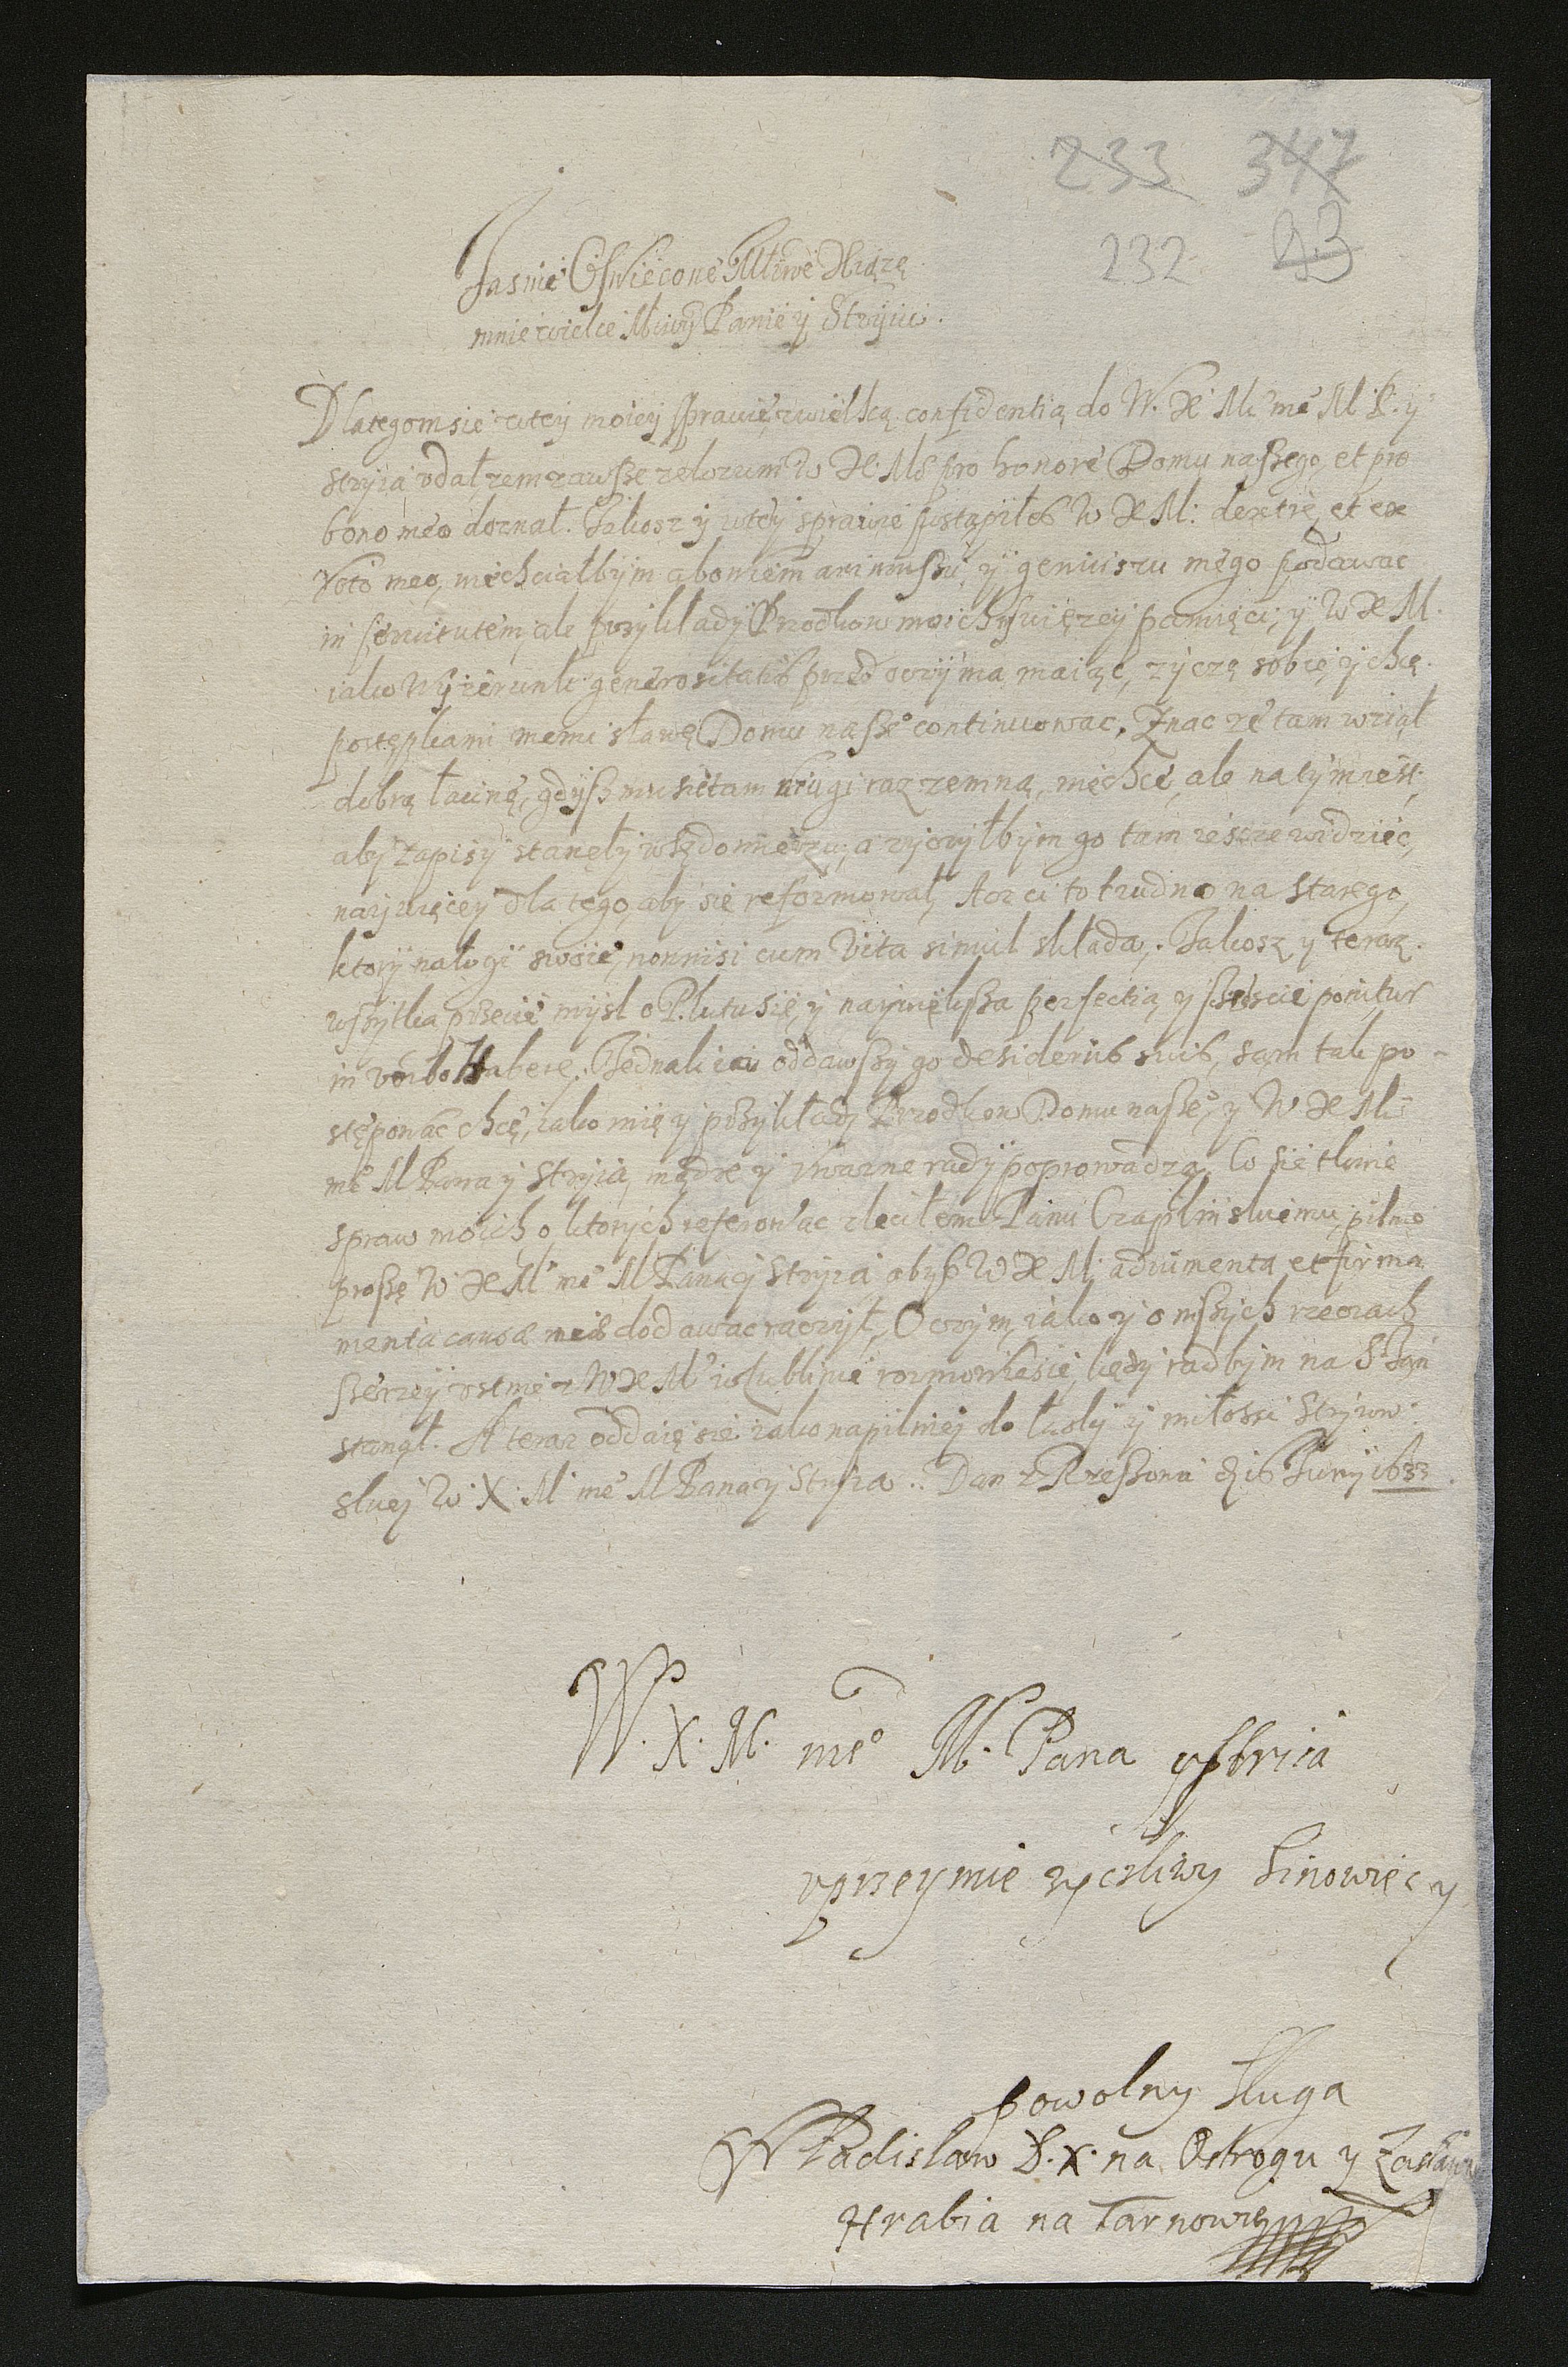 233 347
232 93
Jasnie Oswiecone Młiwe Xiązę
mnie wielce Młwÿ Panie y Stryiu.
Dlategom sie wtey moiey sprawie zwielką confidentią do W. X. Mci me° M P. y
stryia udał, zem zawsze zelozum W X. Mci pro honore Domu naszego, et pro
bono meo doznał. Jakosz y wtey sprawie postąpiłeś W X M: dextre, et ex
Voto meo, niechciałbym abowiem animuszu, ÿ geniuszu mego podawac
in servitutem, ale przykładÿ Przodkow moich swięzey pamięci, ÿ W X M.
iako Wyzerunk generositatis przed oczÿma maiąc, zyczę sobie, y chcę
postępkami memi sławę Domu nasze° continuowac. Znac ze tam wziął
dobrą łacinę, gdysz mu sie tam drugi raz zemną, niechce, ale na tym iest,
aby zapisy stanęłÿ w Sędomierzu, a zyczyłbym go tam iescze widziec,
naywięcey dla tego, aby sie reformował, Acz ci to trudno na starego,
ktorÿ nałogi swoie, nonnisi cum Vita simul składa. Jakosz y teraz
wszytka przecie mysl o Plutusie, y naywiększa perfectia, y sczescie ponitur
in verbo Habere. Jednak ia oddawszy go desideriis suis, sam tak po-
stęponać chcę, iako mię y przykłady Przodkow Domu nasze°, y W X Mci
me° M Pana y Stryia, mądre y uwazne radÿ poprowadzą. Co sie tknie
spraw moich, o ktorych referowac zleciłem Panu Czaplinskiemu, pilno
proszę W X M me° M Pana y Stryia abyś W X M. adiumenta et firma
menta causæ meæ dodawac raczył, O czym, iako y o inszych rzeczach
szerzey ustnie z W X M w Lublinie rozmowięsie, kędy radbym na S Jan
stanął. A teraz oddaię się iako napilniej do łaski y miłosci Stryiow
skiej W. X. M me° M Pana y Stryia. Dan z Rzeszowa d 16 Junij 1633.
W. X. M. me° M. Pana y Striia
uprzeymie zyczliwy Sinowiec y
powolny Sługa
Władisław D. X. na Ostrogu y Zasławiu
Hrabia na Tarnowie